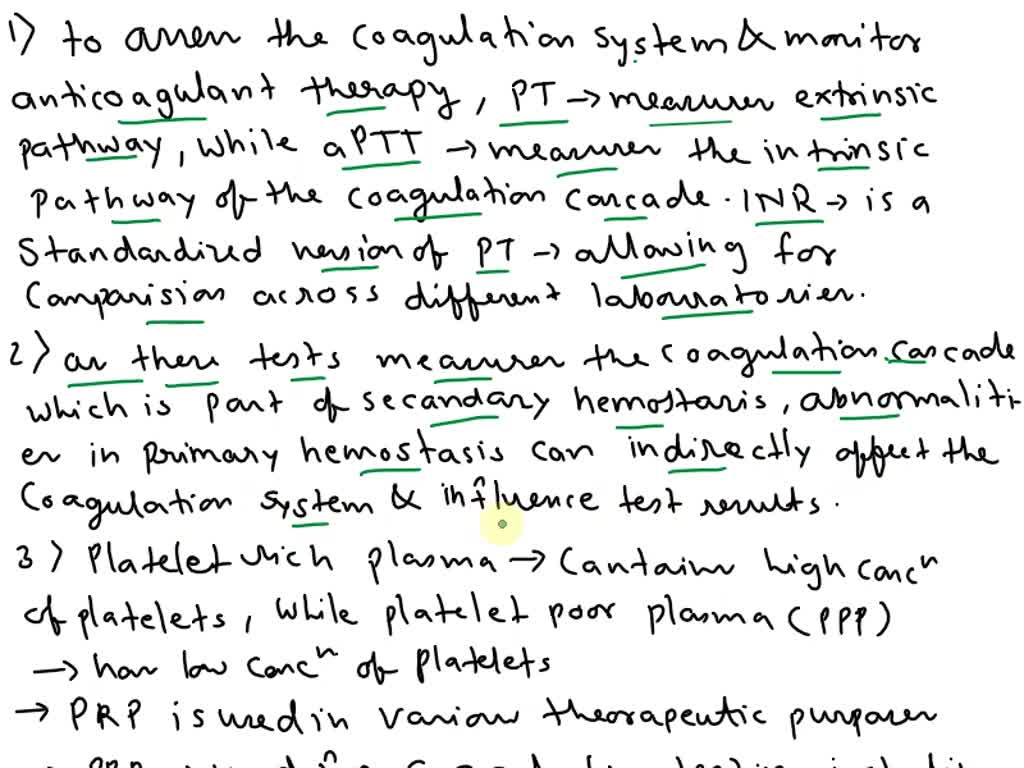 1) to assess the coagulation system & monitor
anticoagulant therapy, PT → measures extrinsic
pathway, while aPTT → measures the intrinsic
pathway of the coagulation cascade. INR → is a
Standardized version of PT → allowing for
Comparision across different laboratories.
2) as these tests measures the coagulation cascade
which is part of secondary hemostasis, abnormaliti-
es in primary hemostasis can indirectly affect the
Coagulation system & influence test results.
3) Platelet rich plasma → Contains high concⁿ
of platelets, while platelet poor plasma (PPP)
→ has low concⁿ of platelets
→ PRP is used in various therapeutic purposes